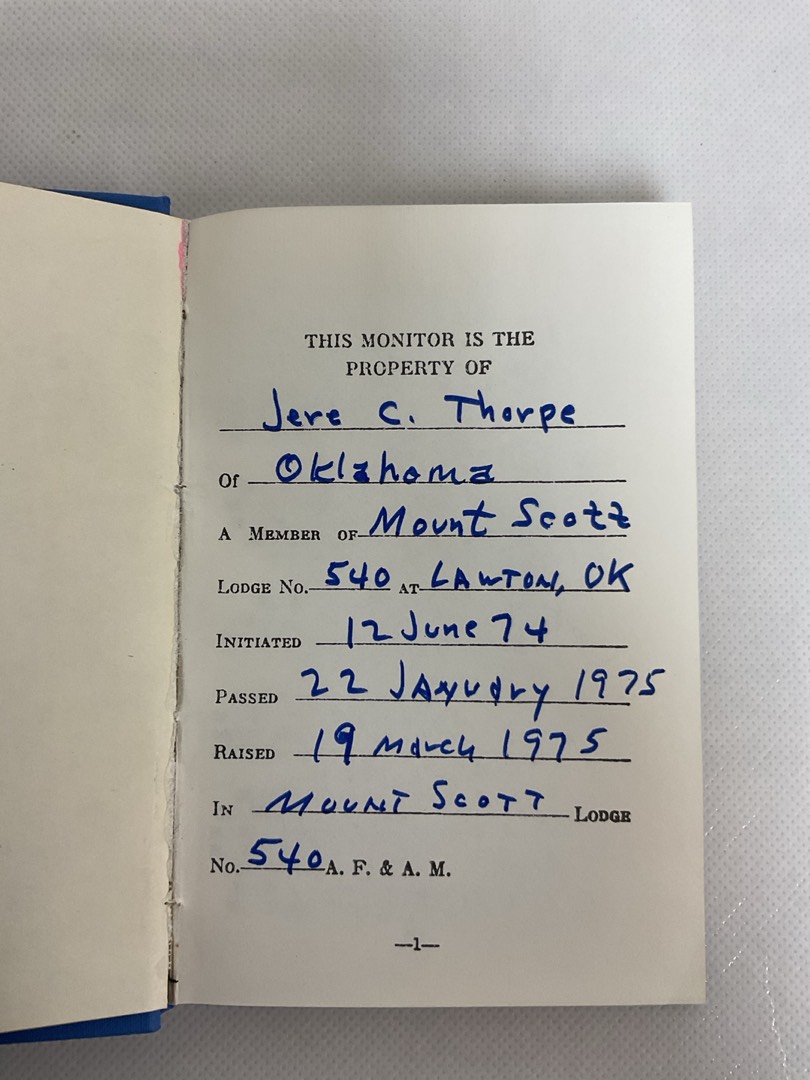 THIS MONITOR IS THE
PROPERTY OF
Jere C. Thorpe
Of Oklahoma
A MEMBER OF Mount Scott
LODGE No. 540 AT LAWTON, OK
INITIATED 12 June 74
PASSED 22 JANUARY 1975
RAISED 19 March 1975
IN MOUNT SCOTT LODGE
No. 540 A. F. & A. M.
—1—